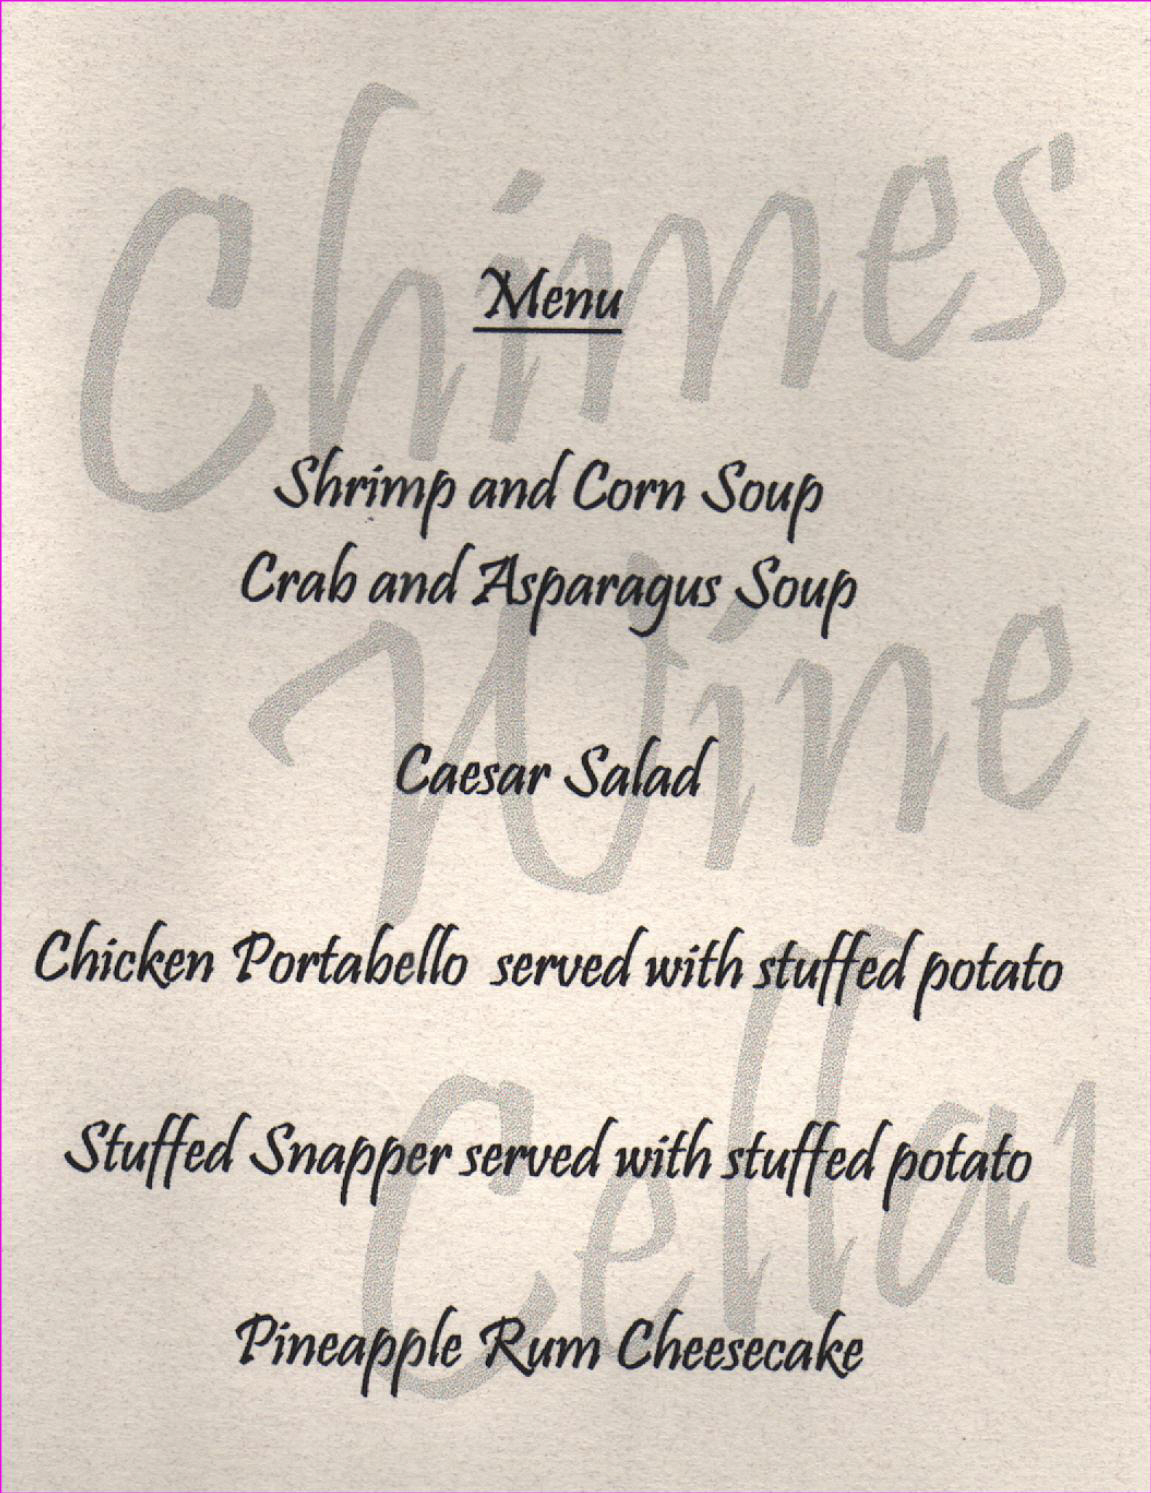 Chimes
Menu
Shrimp and Corn Soup
Crab and Asparagus Soup
Wine
Caesar Salad
Chicken Portabello served with stuffed potato
Cellar
Stuffed Snapper served with stuffed potato
Pineapple Rum Cheesecake